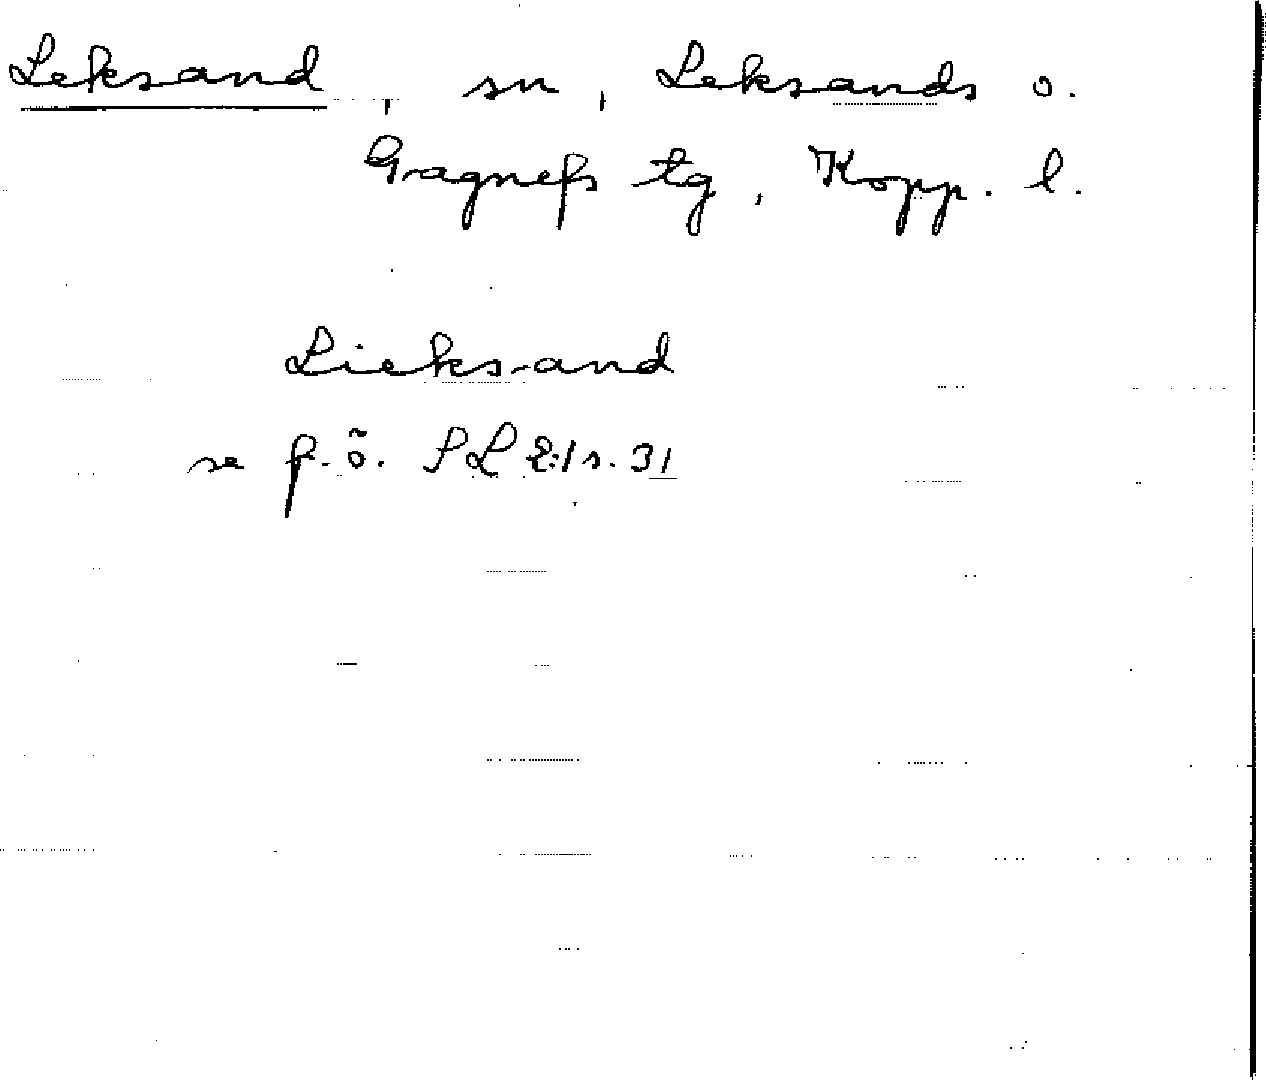 Leksand, sn, Leksands o.
Gagnefs tg, Kopp. l.
Lieksand
se f.ö. SL 2:1 s. 31